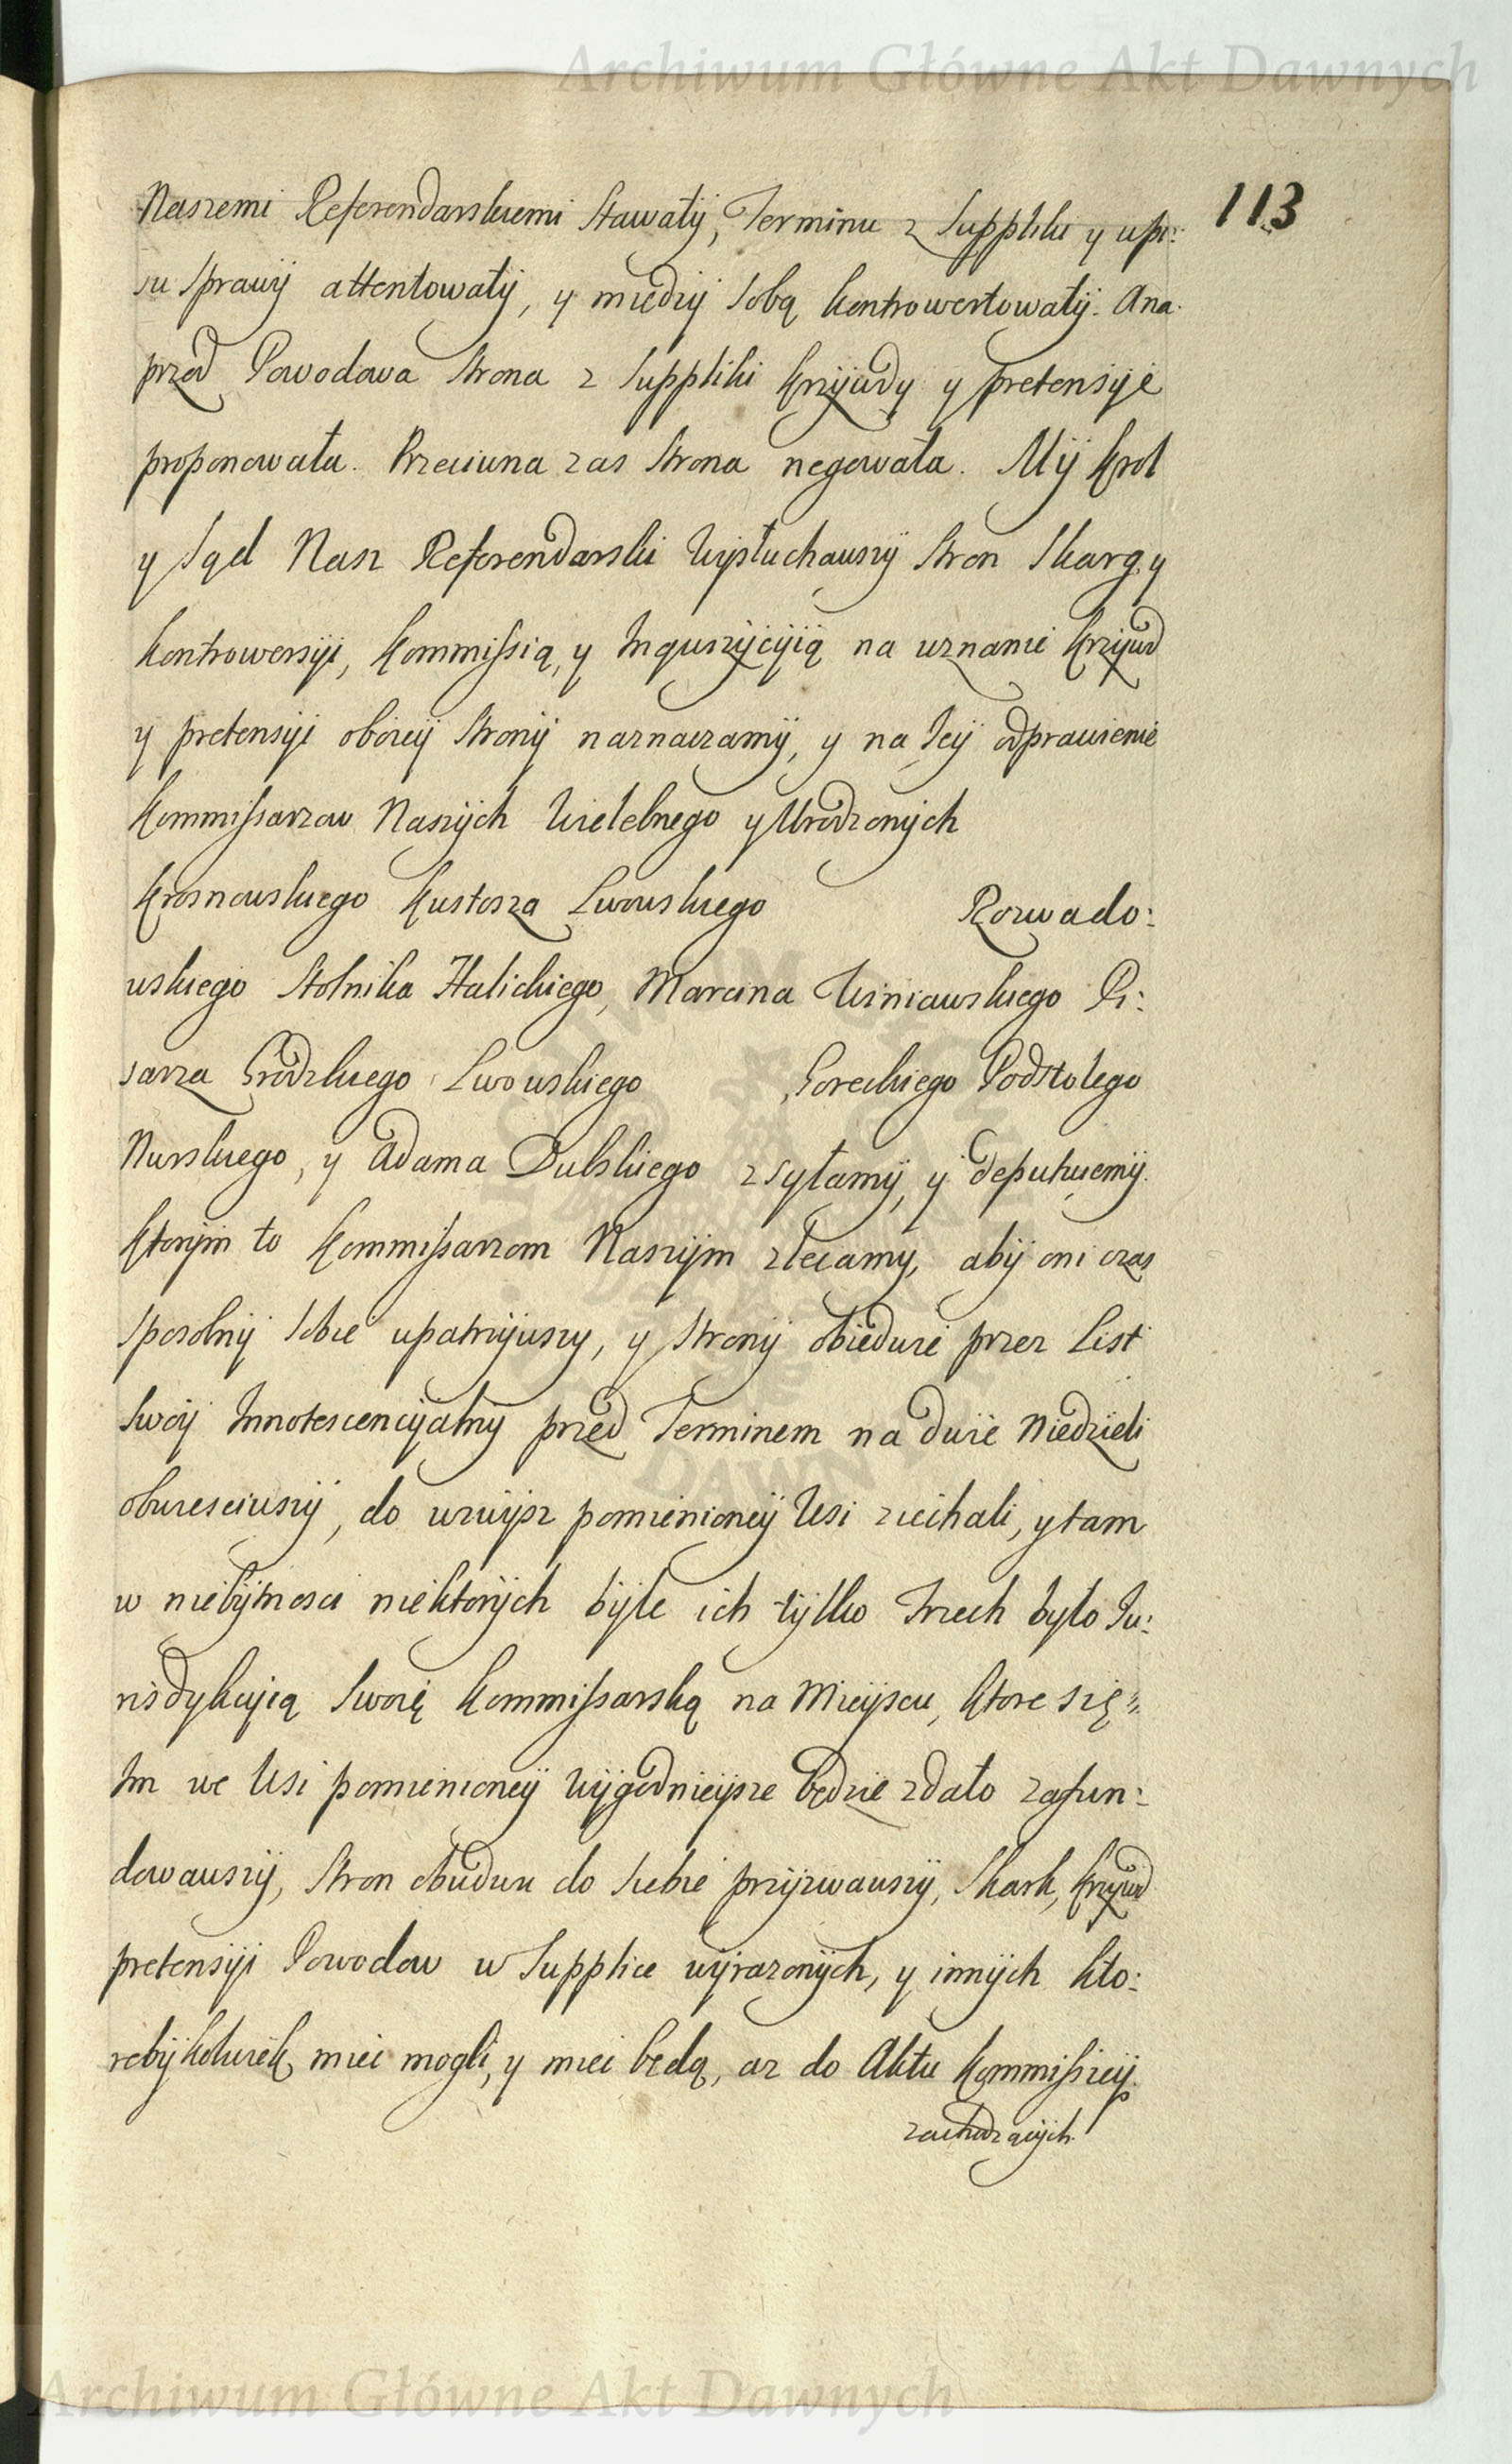 Archiwum Główne Akt Dawnych
113
Naszemi Referendarskiemi Stawały, Terminu z Suppliki y wpi:
su Sprawy attentowały, y między Sobą kontrowertowały. Ana
przod Powodowa Strona z Suppliki krzywdy y pretensye
proponowała. Przeciwna zas Strona negowała. My Krol
y Sąd Nasz Referendarski Wysłuchawszy Stron Skarg, y
kontrowersyi, Kommissią, y Inquizycyią na uznanie krzywd
y pretensyi oboiey Strony naznaczamy, y na Iey odprawienie
Kommissarzow Naszych Wielebnego y Urodzonych
Krosnowskiego Kustosza Lwowskiego Rozwado:
wskiego Stolnika Halickiego, Marcina Winiawskiego Pi:
sarza Grodzkiego Lwowskiego Goreckiego Podstolego
Nurskiego, y Adama Dulskiego zsyłamy, y deputuiemy.
Ktorym to Kommissarzom Naszym zlecamy, aby oni czas
Sposobny Sobie upatrzywszy, y Strony obiedwie przez List
Swoy Innotescencyalny przed Terminem na dwie Niedzieli
obwiesciwszy, do wzwysz pomienioney Wsi ziechali, y tam
w niebytnosci niektorych byle ich tylko trzech było Iu:
risdykcyią Swoię Kommissarską na Mieyscu, ktore się
Im we Wsi pomienioney wygodnieysze będzie zdało zafun:
dowawszy, Stron obudwu do Siebie przyzwawszy, Skark, krzywd
pretensyi Powodow w Supplice wyrazonych, y innych kto:
rebykolwiek miec mogli, y miec będą, az do Aktu Kommissiey
zachodzących
Archiwum Główne Akt Dawnych